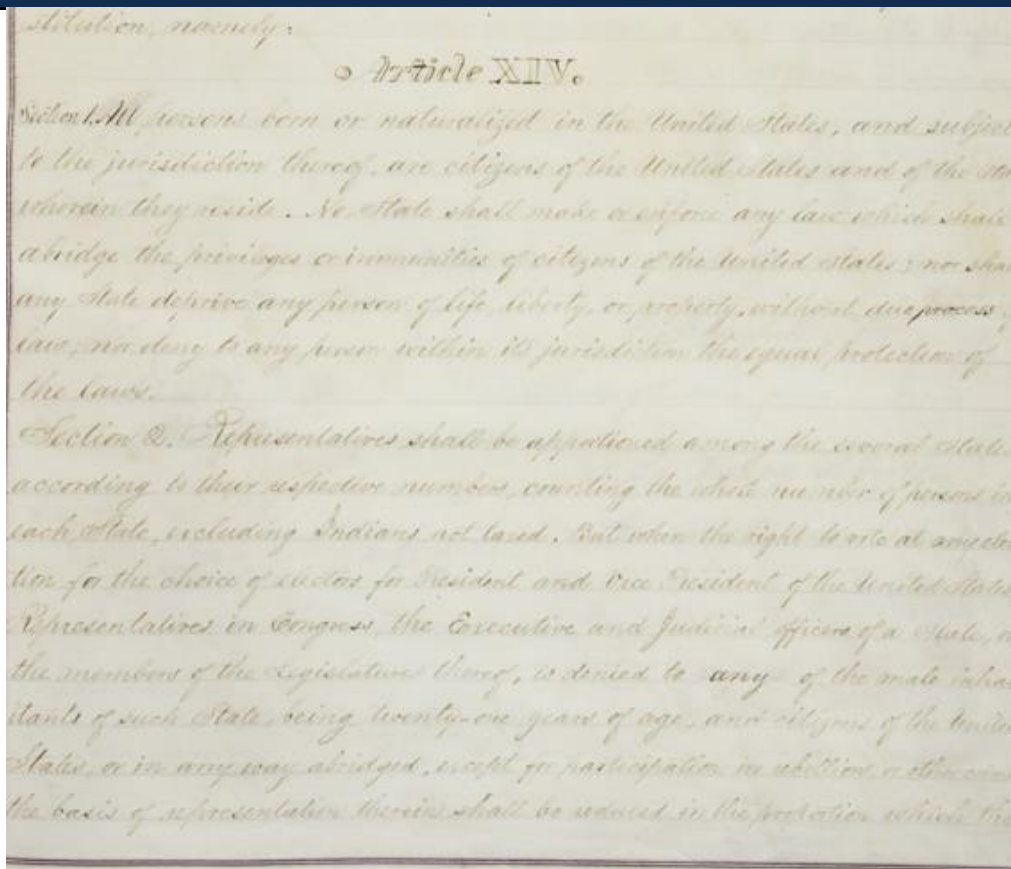 stitution, namely:
Article XIV.
Section 1. All persons born or naturalized in the United States, and subject
to the jurisdiction thereof, are citizens of the United States and of the Sta
wherein they reside. No State shall make or enforce any law which shall
abridge the privileges or immunities of citizens of the United States; nor shal
any State deprive any person of life, liberty, or property, without due process
law; nor deny to any person within its jurisdiction the equal protection of
the laws.
Section 2. Representatives shall be apportioned among the several State
according to their respective numbers, counting the whole number of persons in
each State, excluding Indians not taxed. But when the right to vote at any elec
tion for the choice of electors for President and Vice President of the United States
Representatives in Congress, the Executive and Judicial officers of a State, o
the members of the Legislature thereof, is denied to any of the male inhab
itants of such State, being twenty-one years of age, and citizens of the Unite
States, or in any way abridged, except for participation in rebellion, or other crime
the basis of representation therein shall be reduced in the proportion which the